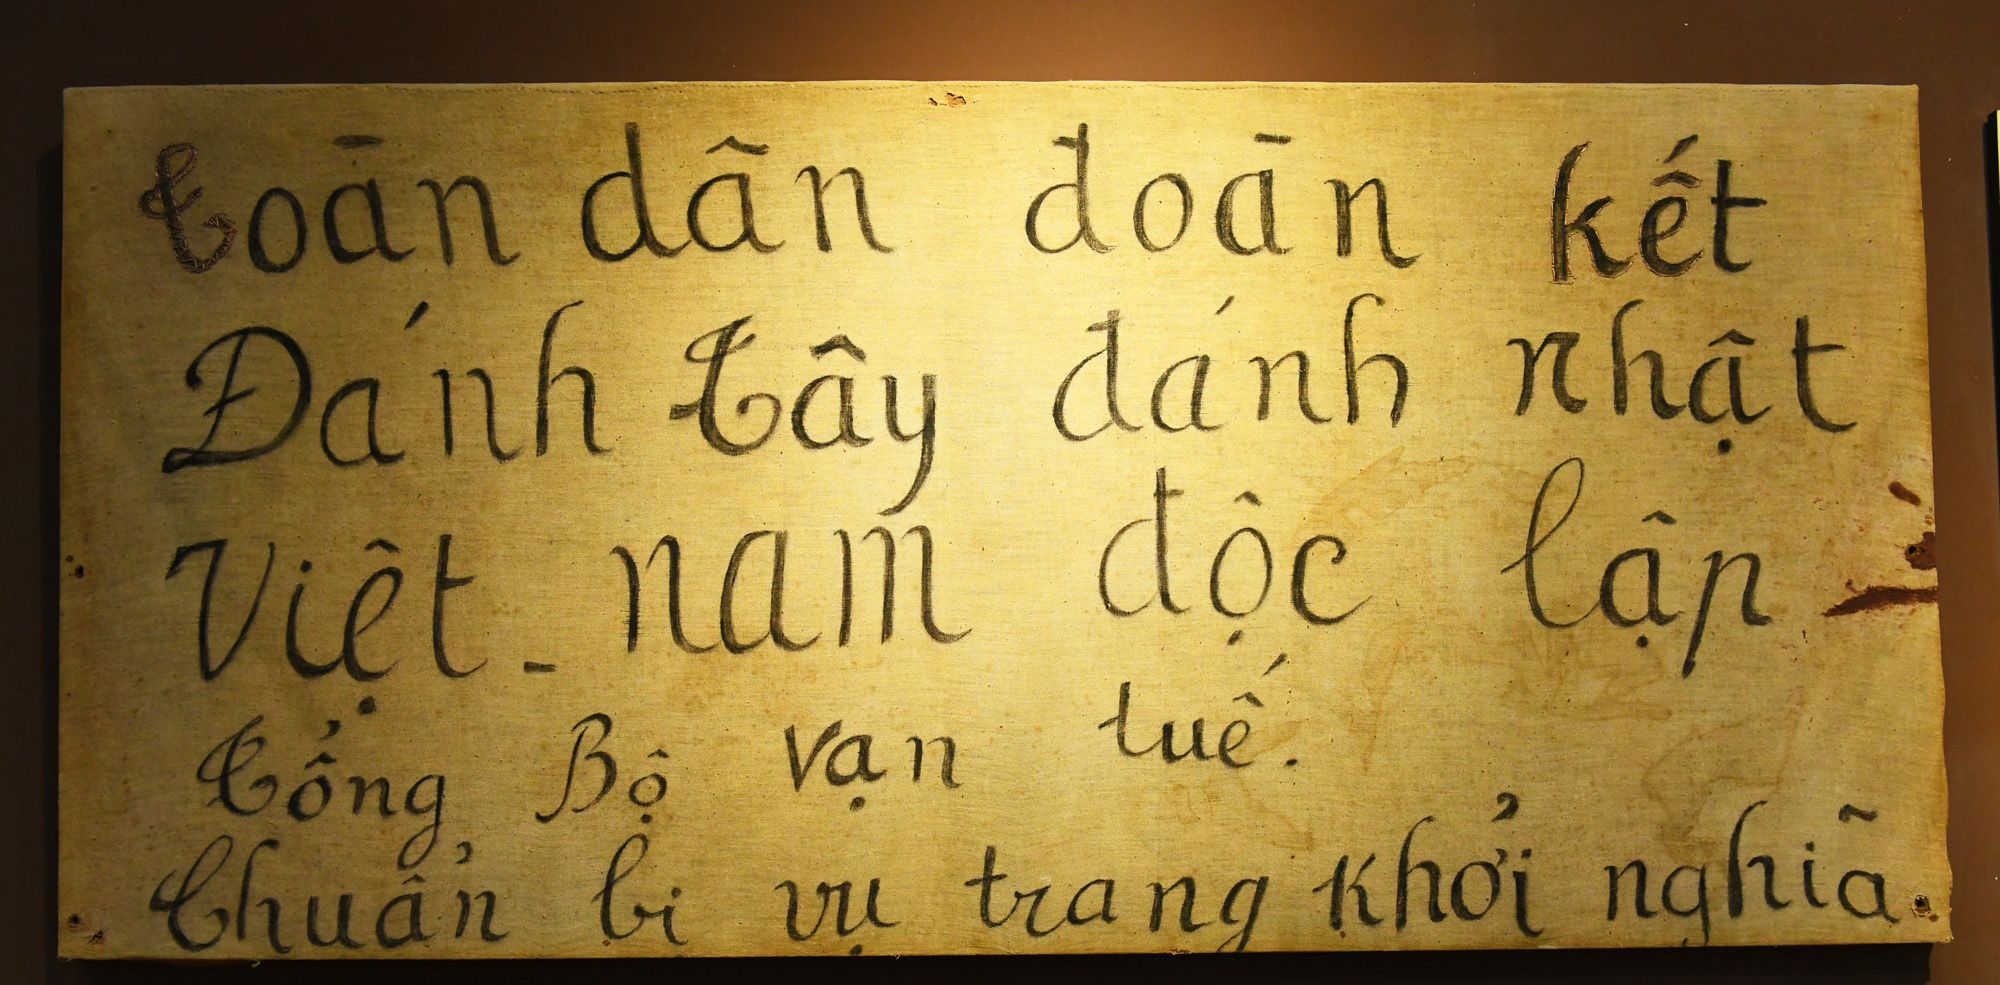 toàn dân đoàn kết
Đánh Tây đánh nhật
Việt - nam độc lập
Tổng Bộ vạn tuế.
Chuẩn bi vụ trang khởi nghiã